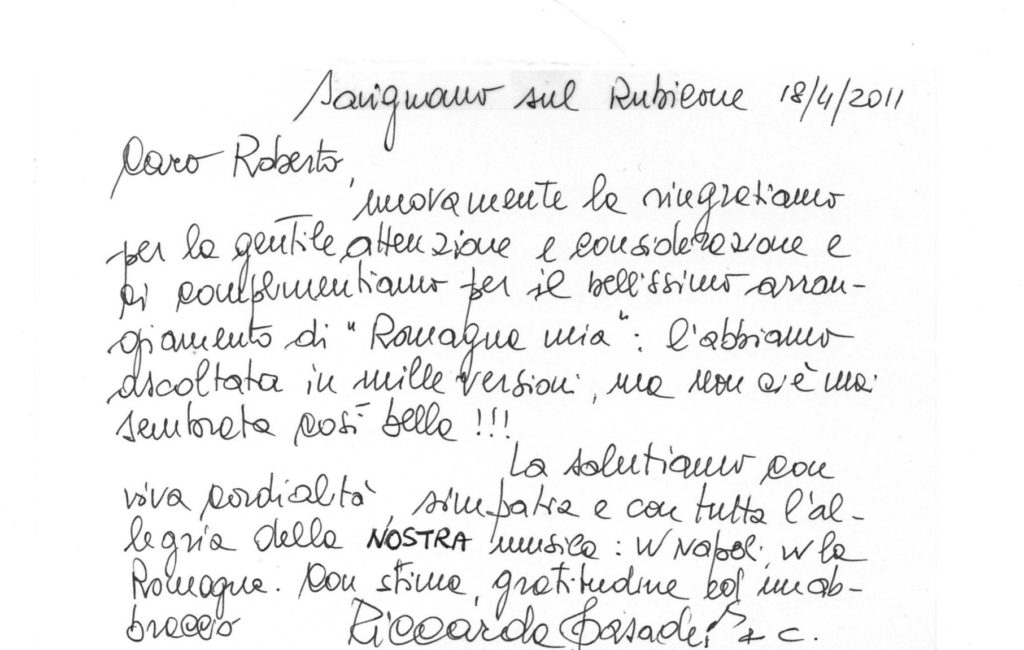 Savignano sul Rubicone 18/4/2011
Caro Roberto,
nuovamente la ringraziamo
per la gentile attenzione e considerazione e
ci complimentiamo per il bellissimo arran-
giamento di "Romagna mia": l'abbiamo
ascoltata in mille versioni, ma non ci è mai
sembrata così bella !!!
La salutiamo con
viva cordialità, simpatia e con tutta l'al-
legria della NOSTRA musica: W Napoli, W la
Romagna. Con stima, gratitudine ed un ab-
braccio Riccarda Casadei